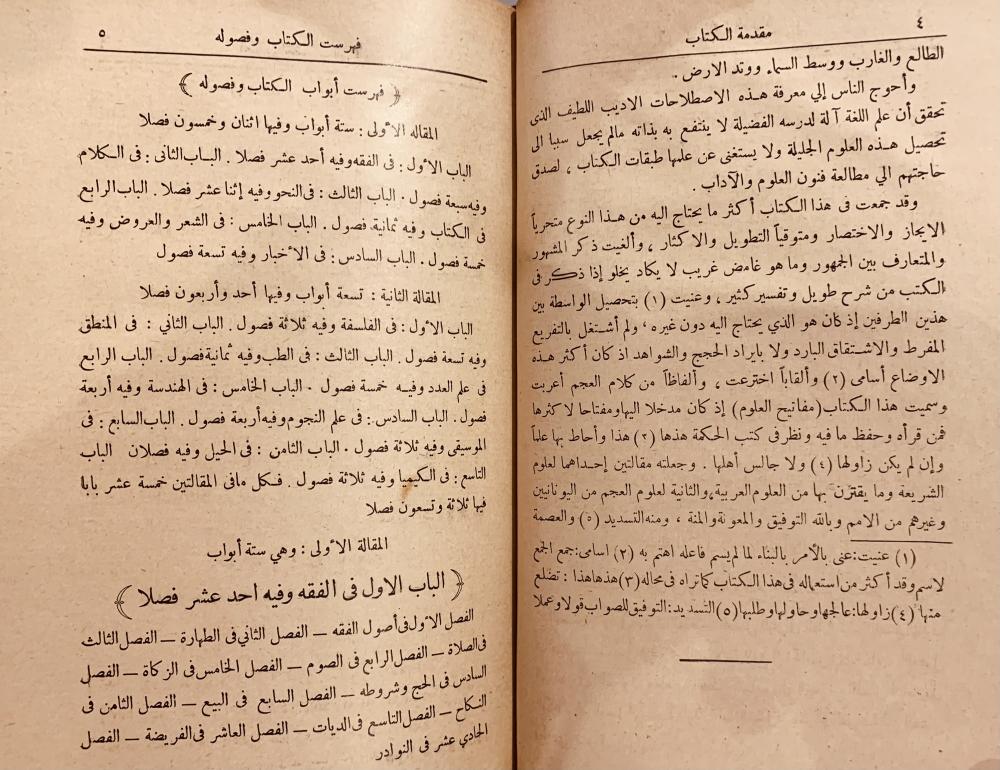 ٤
مقدمة الكتاب
الطالع والغارب ووسط السماء ووتد الارض .
وأحوج الناس إلي معرفة هذه الاصطلاحات الاديب اللطيف الذى
تحقق أن علم اللغة آلة لدرسه الفضيلة لا ينتفع به بذاته مالم يجعل سببا الى
تحصيل هذه العلوم الجليلة ولا يستغنى عن علمها طبقات الكتاب ، لصدق
حاجتهم الي مطالعة فنون العلوم والآداب .
وقد جمعت فى هذا الكتاب أكثر ما يحتاج اليه من هذا النوع متحرياً
الايجاز والاختصار ومتوقياً التطويل والاكثار ، وألغيت ذكر المشهور
والمتعارف بين الجمهور وما هو غامض غريب لا يكاد يخلو إذا ذكر فى
الكتب من شرح طويل وتفسير كثير ، وعنيت (١) بتحصيل الواسطة بين
هذين الطرفين إذ كان هو الذي يحتاج اليه دون غيره ، ولم أشتغل بالتفريع
المفرط والاشتقاق البارد ولا بايراد الحجج والشواهد اذ كان أكثر هذه
الاوضاع أسامى (٢) وألقاباً اخترعت ، وألفاظاً من كلام العجم أعربت
وسميت هذا الكتاب (مفاتيح العلوم) إذ كان مدخلا اليها ومفتاحا لاكثرها
فمن قرأه وحفظ ما فيه ونظر فى كتب الحكمة هذها (٣) هذا وأحاط بها علماً
وإن لم يكن زاولها (٤) ولا جالس أهلها . وجعلته مقالتين إحداهما لعلوم
الشريعة وما يقترن بها من العلوم العربية ، والثانية لعلوم العجم من اليونانيين
وغيرهم من الامم وبالله التوفيق والمعونة والمنة ، ومنه التسديد (٥) والعصمة
(١) عنيت : عنى بالأمر بالبناء لما لم يسم فاعله اهتم به (٢) اسامى : جمع الجمع
لاسم وقد أكثر من استعماله فى هذا الكتاب كما تراه فى محاله (٣) هذها هذا : تضلع
منها (٤) زاولها : عالجها وحاولها وطلبها (٥) التسديد : التوفيق للصواب قولا وعملا
فهرست الكتاب وفصوله
٥
﴿ فهرست أبواب الكتاب وفصوله ﴾
المقاله الأولى : ستة أبواب وفيها اثنان وخمسون فصلا
الباب الأول : فى الفقه وفيه أحد عشر فصلا . الباب الثانى : فى الكلام
وفيه سبعة فصول . الباب الثالث : فى النحو وفيه إثنا عشر فصلا . الباب الرابع
فى الكتاب وفيه ثمانية فصول . الباب الخامس : فى الشعر والعروض وفيه
خمسة فصول . الباب السادس : فى الأخبار وفيه تسعة فصول
المقالة الثانية : تسعة أبواب وفيها أحد وأربعون فصلا
الباب الأول : فى الفلسفة وفيه ثلاثة فصول . الباب الثاني : فى المنطق
وفيه تسعة فصول . الباب الثالث : فى الطب وفيه ثمانية فصول . الباب الرابع
فى علم العدد وفيه خمسة فصول . الباب الخامس : فى الهندسة وفيه أربعة
فصول . الباب السادس : فى علم النجوم وفيه أربعة فصول . الباب السابع : فى
الموسيقى وفيه ثلاثة فصول . الباب الثامن : فى الحيل وفيه فصلان الباب
التاسع : فى الكيميا وفيه ثلاثة فصول . فكل مافى المقالتين خمسة عشر بابا
فيها ثلاثة وتسعون فصلا
المقالة الأولى : وهي ستة أبواب
﴿ الباب الاول فى الفقه وفيه احد عشر فصلا ﴾
الفصل الأول فى أصول الفقه — الفصل الثاني فى الطهارة — الفصل الثالث
فى الصلاة — الفصل الرابع فى الصوم — الفصل الخامس فى الزكاة — الفصل
السادس فى الحج وشروطه — الفصل السابع فى البيع — الفصل الثامن فى
النكاح — الفصل التاسع فى الديات — الفصل العاشر فى الفريضة — الفصل
الحادي عشر فى النوادر